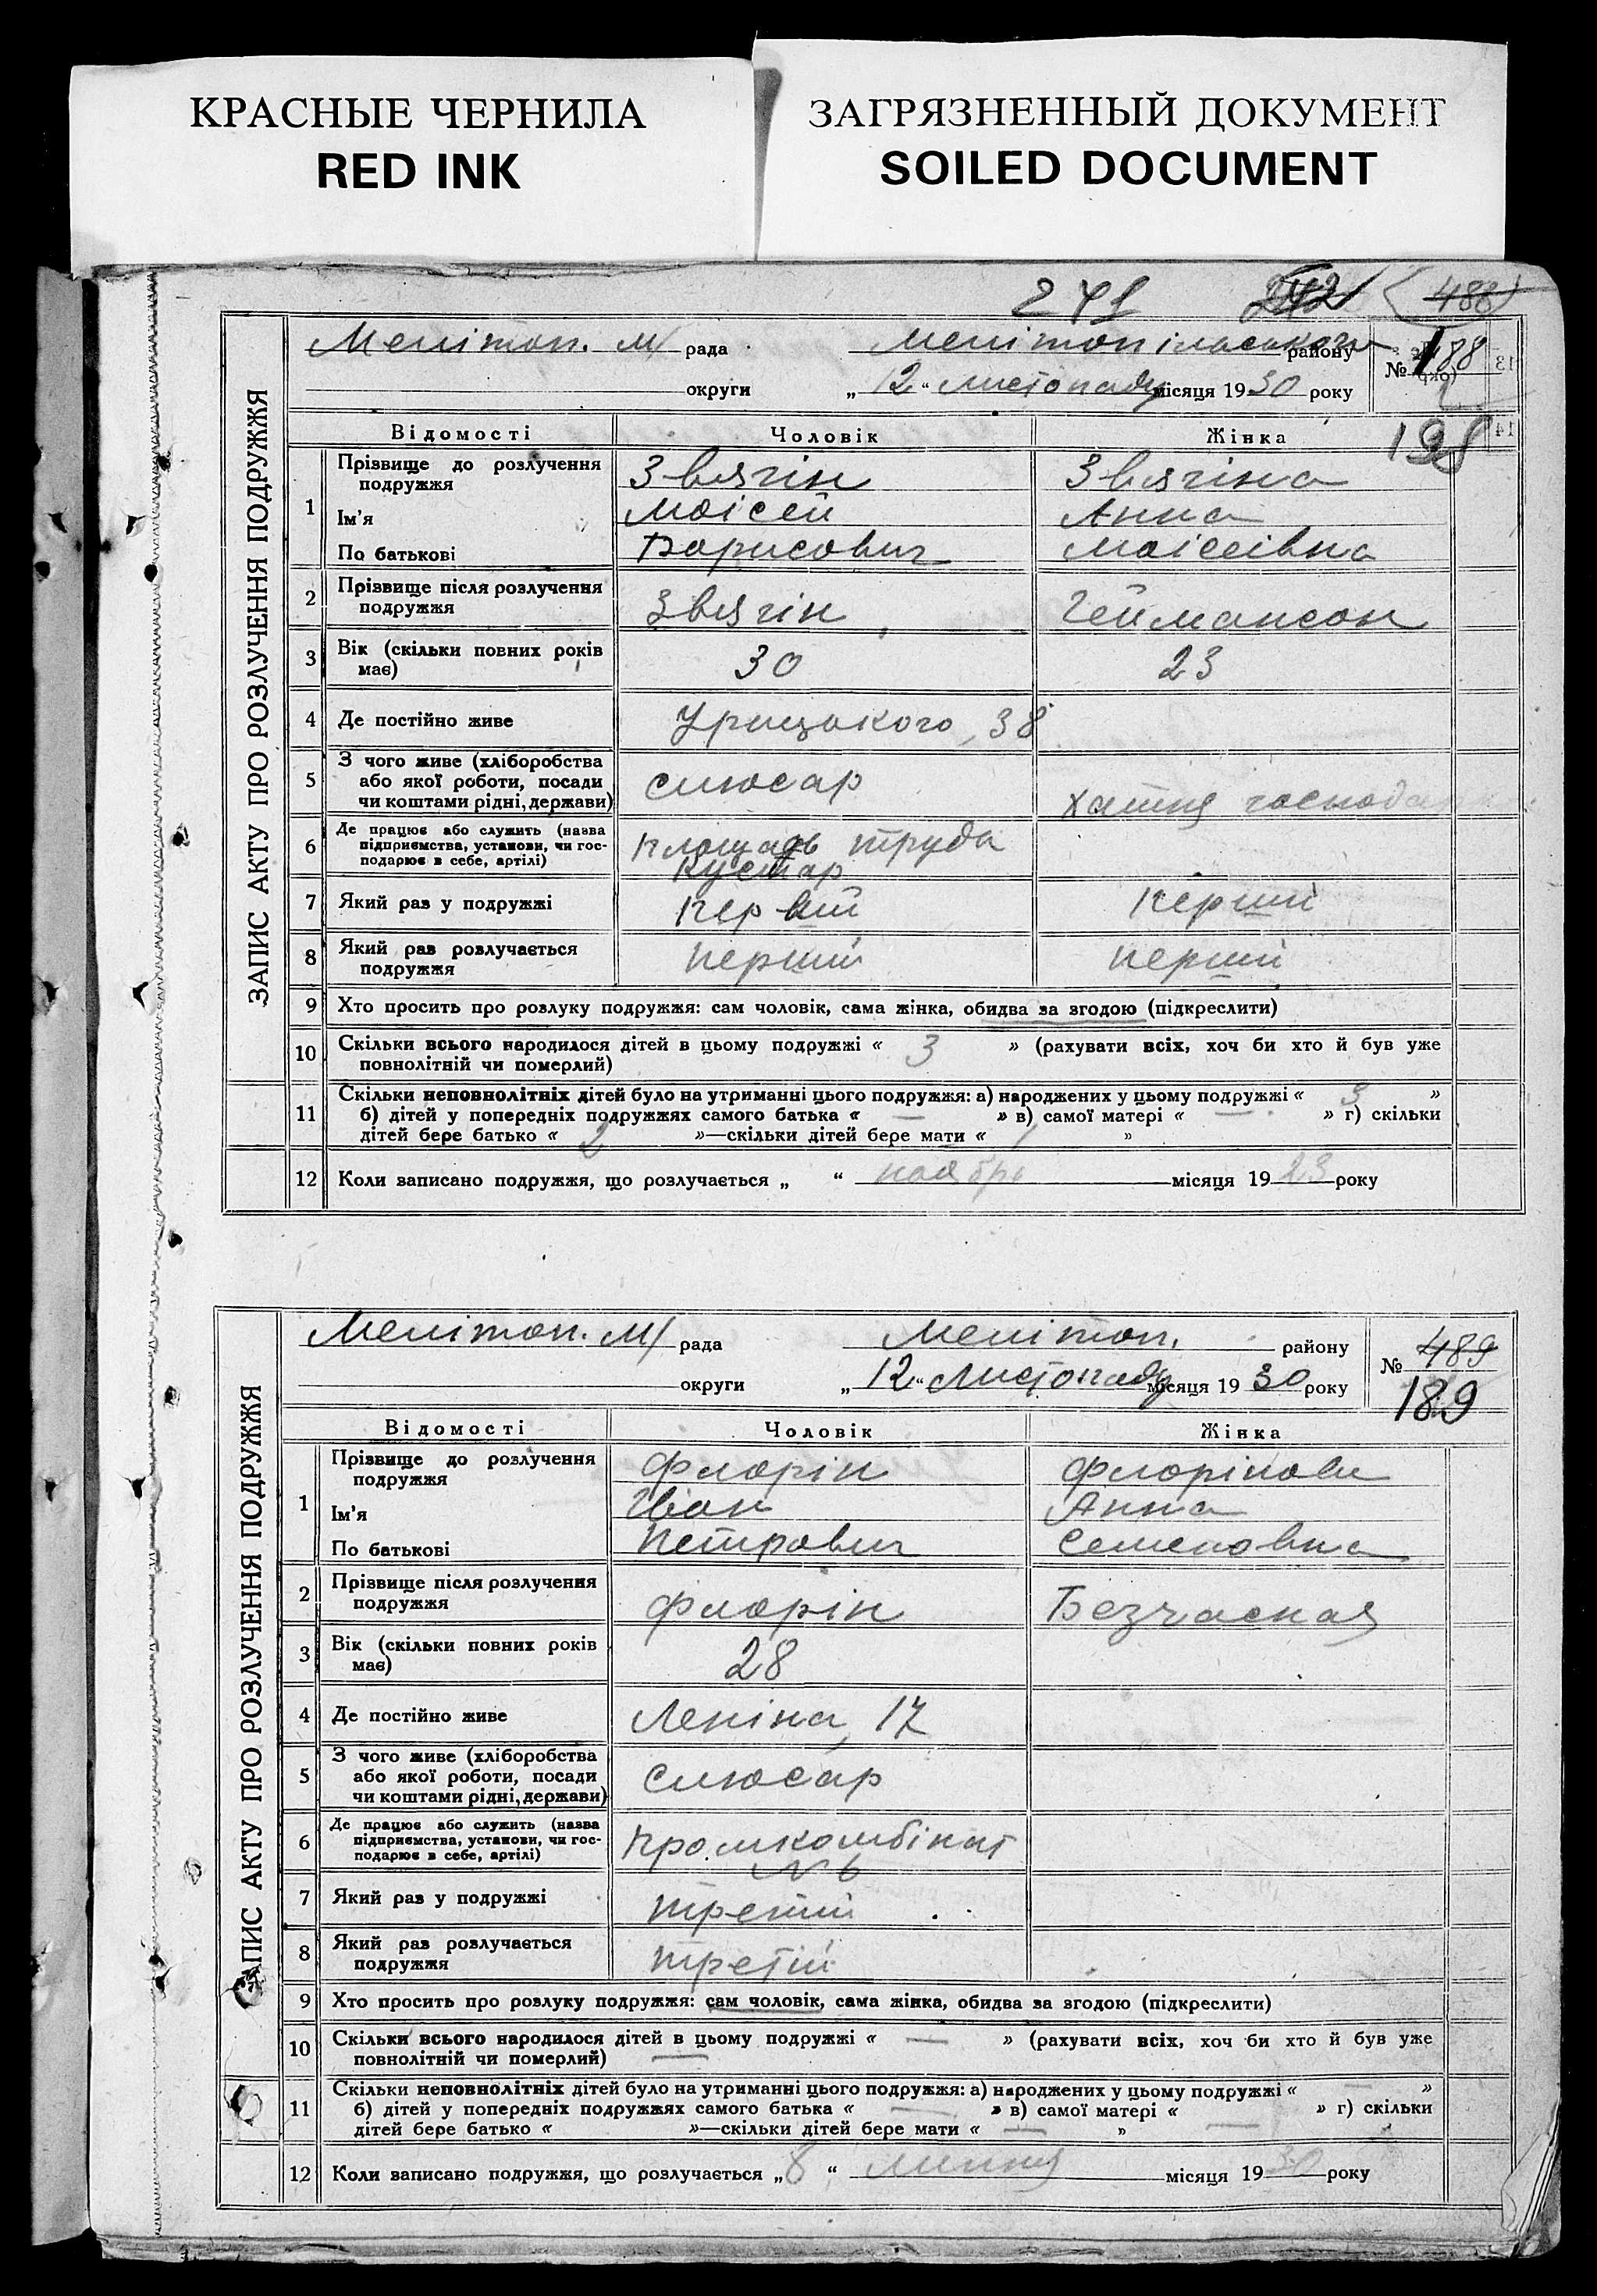 КРАСНЫЕ ЧЕРНИЛА
RED INK
ЗАГРЯЗНЕННЫЙ ДОКУМЕНТ
SOILED DOCUMENT
241 242 488
ЗАПИС АКТУ ПРО РОЗЛУЧЕННЯ ПОДРУЖЖЯ
Мелітоп. м/ рада Мелітопільського району № 188
округи „12“ листопаду місяця 1930 року
198
Відомості Чоловік Жінка
1 Прізвище до розлучення подружжя Звягін Звягіна
Ім'я Моісей Анна
По батькові Борисович Моісеівна
2 Прізвище після розлучення подружжя Звягін Геймансон
3 Вік (скільки повних років має) 30 23
4 Де постійно живе Урицького, 38
5 З чого живе (хліборобства або якої роботи, посади чи коштами рідні, держави) слюсар хатня господарка
6 Де працює або служить (назва підприємства, установи, чи господарює в себе, артілі) площадь труда кустар
7 Який раз у подружжі первий перший
8 Який раз розлучається подружжя перший перший
9 Хто просить про розлуку подружжя: сам чоловік, сама жінка, обидва за згодою (підкреслити)
10 Скільки всього народилося дітей в цьому подружжі « 3 » (рахувати всіх, хоч би хто й був уже
повнолітній чи померлий)
11 Скільки неповнолітніх дітей було на утриманні цього подружжя: а) народжених у цьому подружжі « 3 »
б) дітей у попередніх подружжях самого батька « — » в) самої матері « — » г) скільки
дітей бере батько « 2 »—скільки дітей бере мати « 1 »
12 Коли записано подружжя, що розлучається „ “ ноябрі місяця 1923 року
ЗАПИС АКТУ ПРО РОЗЛУЧЕННЯ ПОДРУЖЖЯ
Мелітоп. м/ рада Мелітоп. району № 489
округи „12“ Листопаду місяця 1930 року 189
Відомості Чоловік Жінка
1 Прізвище до розлучення подружжя Флорін Флорінова
Ім'я Іван Анна
По батькові Петрович Семеновна
2 Прізвище після розлучення подружжя Флорін Безчасная
3 Вік (скільки повних років має) 28
4 Де постійно живе Леніна, 17
5 З чого живе (хліборобства або якої роботи, посади чи коштами рідні, держави) слюсар
6 Де працює або служить (назва підприємства, установи, чи господарює в себе, артілі) промкомбінат № 6
7 Який раз у подружжі третий
8 Який раз розлучається подружжя третій
9 Хто просить про розлуку подружжя: сам чоловік, сама жінка, обидва за згодою (підкреслити)
10 Скільки всього народилося дітей в цьому подружжі « — » (рахувати всіх, хоч би хто й був уже
повнолітній чи померлий) —
11 Скільки неповнолітніх дітей було на утриманні цього подружжя: а) народжених у цьому подружжі « — »
б) дітей у попередніх подружжях самого батька « — » в) самої матері « — » г) скільки
дітей бере батько « »—скільки дітей бере мати « — »
12 Коли записано подружжя, що розлучається „8“ липня місяця 1930 року